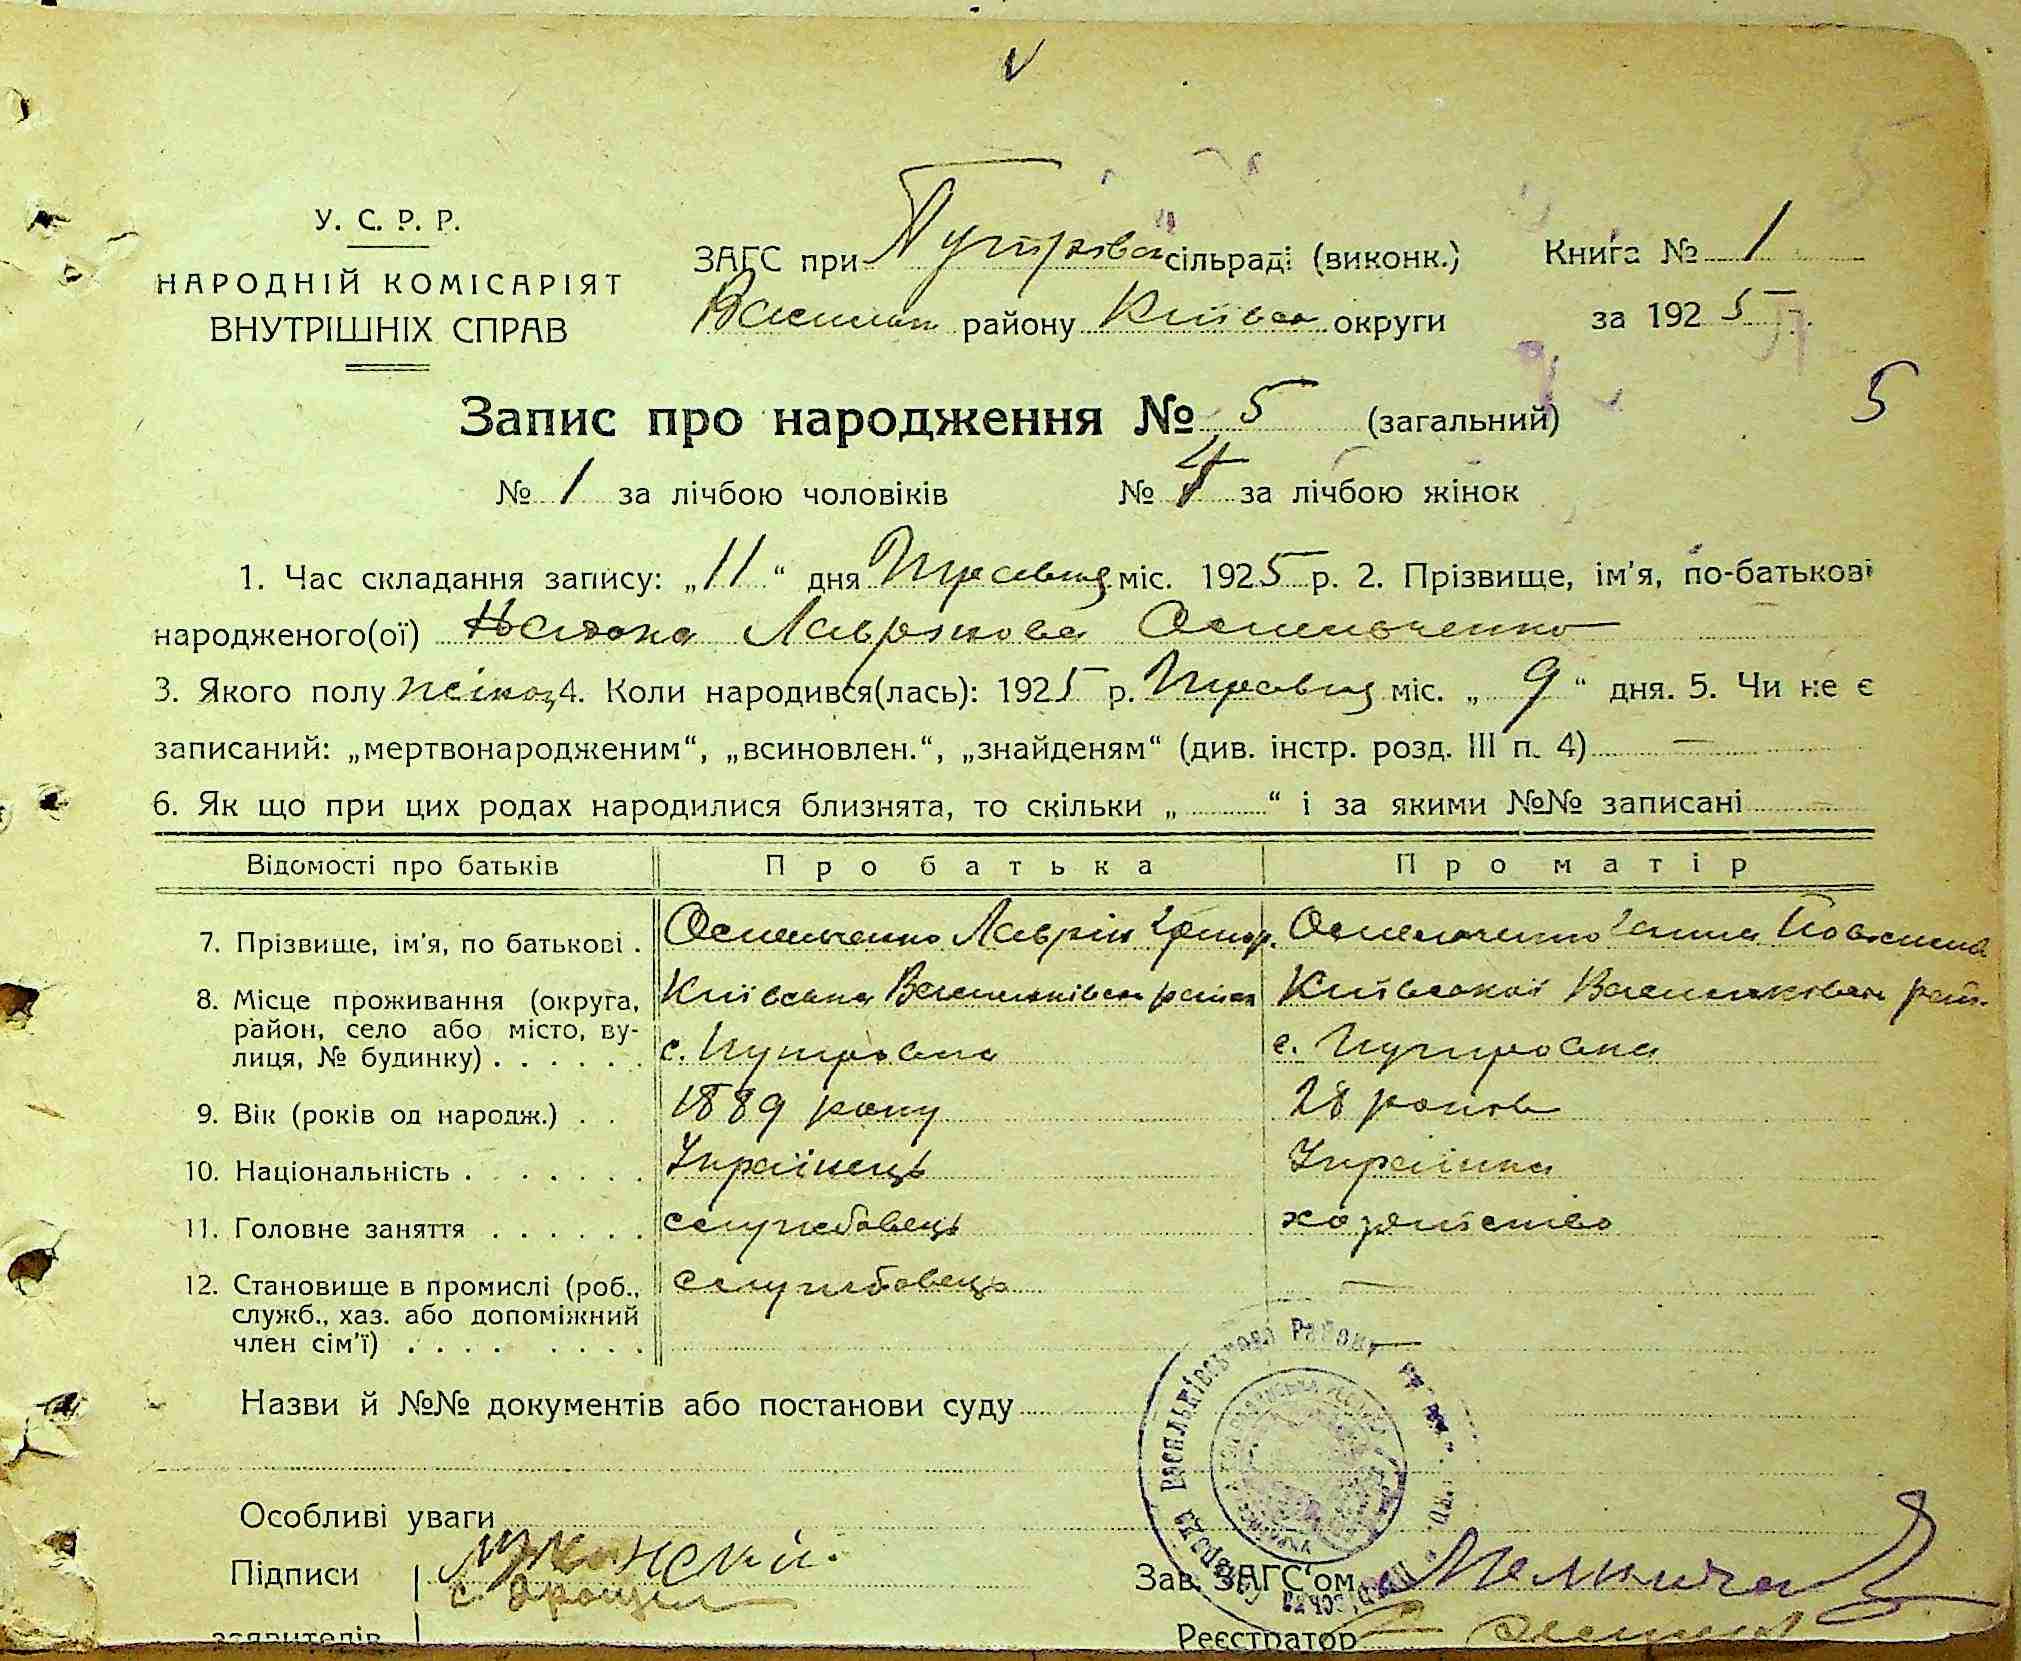 У. С. Р. Р.
НАРОДНІЙ КОМІСАРІЯТ
ВНУТРІШНІХ СПРАВ
ЗАГС при Путрівск сільраді (виконк.)
Васильк району Київск округи
Книга № 1
за 1925
5
Запис про народження № 5 (загальний)
№ 1 за лічбою чоловіків № 4 за лічбою жінок
1. Час складання запису: „11“ дня Травня міс. 1925 р. 2. Прізвище, ім'я, по-батькові
народженого(ої) Лаврінова
3. Якого полу жіноц 4. Коли народився(лась): 1925 р. Травня міс. „9“ дня. 5. Чи не є
записаний: „мертвонародженим“, „всиновлен.“, „знайденям“ (див. інстр. розд. III п. 4) —
6. Як що при цих родах народилися близнята, то скільки „ “ і за якими №№ записані —
Відомості про батьків Про батька Про матір
7. Прізвище, ім'я, по батькові . Лаврін Ганна
8. Місце проживання (округа, район, село або місто, вулиця, № будинку) . . . . . .
Київська Васильківск район
с. Путровка
Київской Васильковск рай.
с. Путровка
9. Вік (років од народж.) . . 1889 року 28 років
10. Національність . . . . . . . Українець Українка
11. Головне заняття . . . . . . службовець хозяйство
12. Становище в промислі (роб., служб., хаз. або допоміжний член сім'ї) . . . . . . . . . службовець —
Назви й №№ документів або постанови суду
Особливі уваги
Підписи
заявителів
Зав. ЗАГС'ом
Реєстратор
Васильківського Району